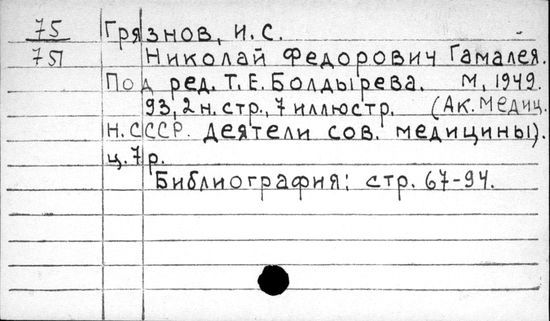 75 Грязнов, И. С.
751 Николай Федорович Гамалея.
Под ред. Т. Е. Болдырева. М, 1949.
93, 2 н. стр., 7 иллюстр. (Ак. медиц.
н. СССР. Деятели сов. медицины).
ц. 7 р.
Библиография: стр. 67-94.